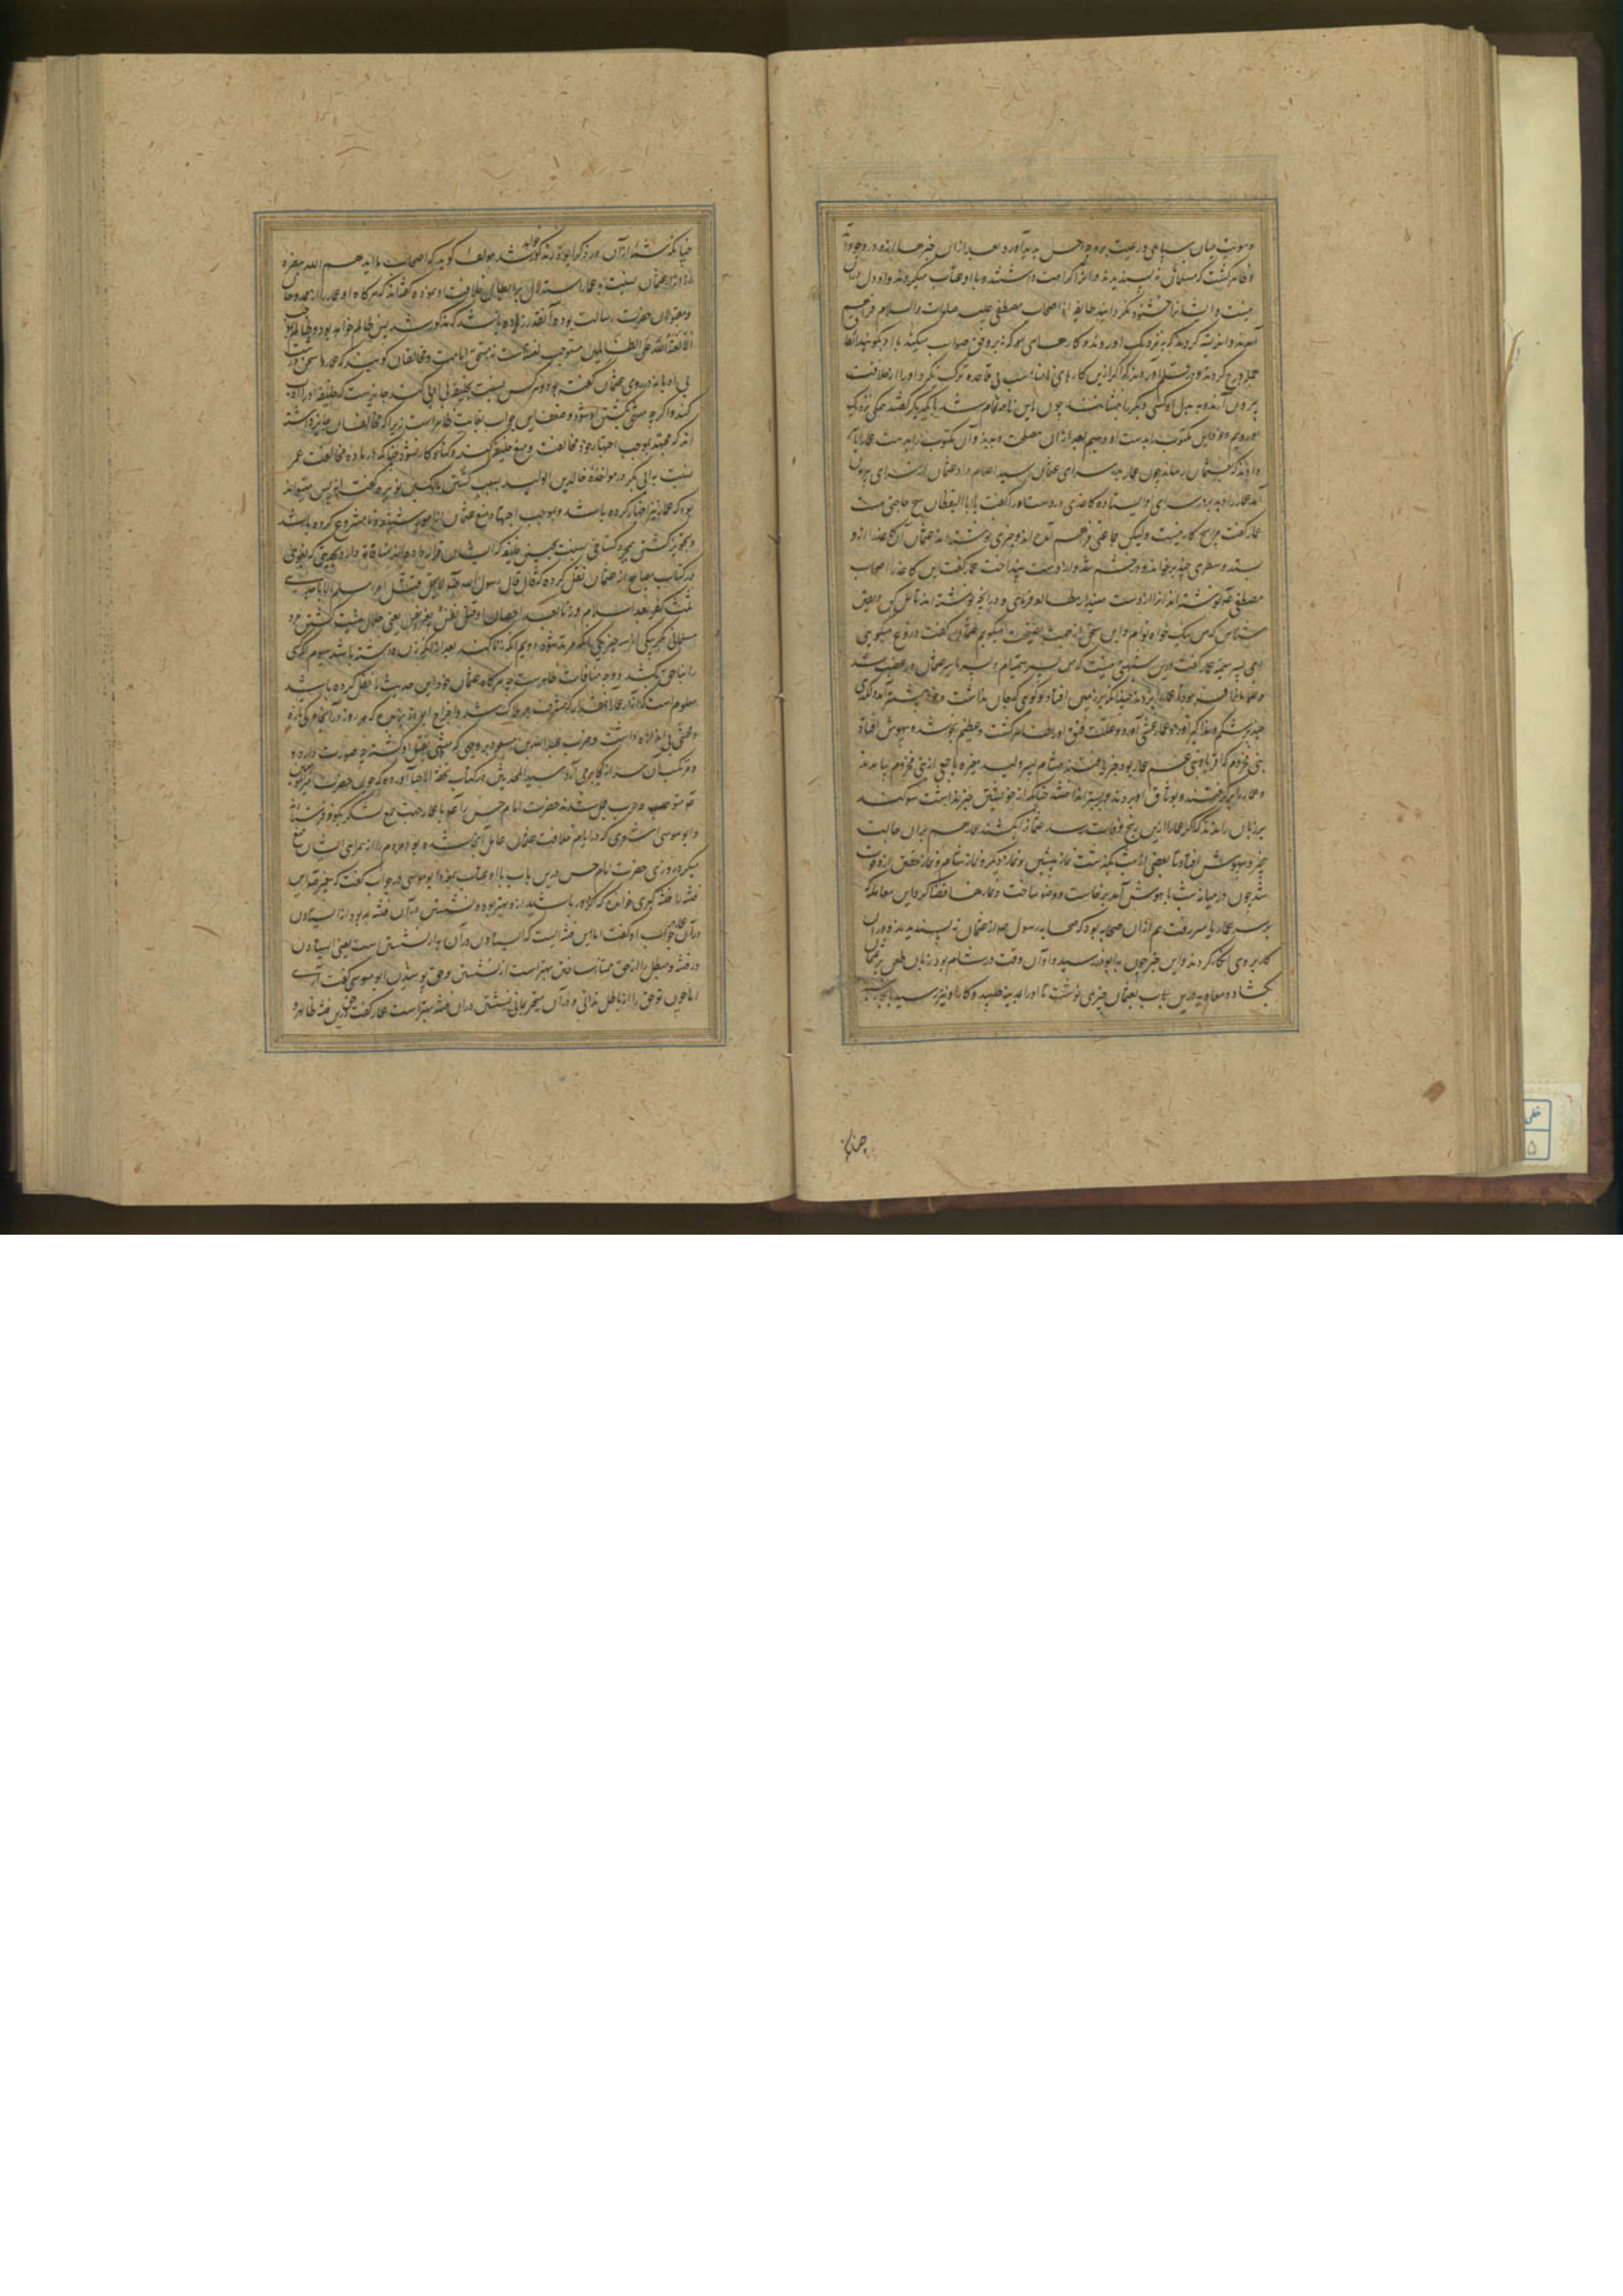 وسویت میان سپاهی و رعیت بر وجه احسن پدید آورد و بعد از آن خبرها از او در وجود آمد
و ظاهر گشت که مسلمانان نه پسندیدند و آنرا کراهیت داشتند و با او عتاب میکردند و او دل بران
نیست و ایشانرا خشنود نگردانید طایفه از اصحاب مصطفی علیه صلوات والسلام فراهم
آمدند و اندیشه کردند که به نزدیک او روند و کارهایی که نه بر وفق صواب میکند با او بگویند
جمله درج کردند و در قلم آوردند که اگر ازین کارهای نامناسب بی قاعده ترک نگیرد او را از خلافت
بیرون آرند و به بدل او کسی دیگر را بنشانند چون این نامه تمام شد با یکدیگر گفتند
او رویم و این مکتوب بدست او دهیم بعد از آن مصلحت دیدند و آن مکتوب را بدست عمار یاسر
دادند که بعثمان رساند چون عمار بدر سرای عثمان رسید اعلام داد عثمان از سرای بیرون
آمد عمار را دید بر در سرای او ایستاده کاغذی در دست او را گفت یا ابا الیقظان هیچ حاجتی هست
عمار گفت مرا هیچ کار نیست ولیکن جماعتی فراهم آمده اند و چیزی نوشته اند عثمان آن کاغذ از او
بستد و سطری چند بر خواند و در خشم شد و از دست بینداخت عمار گفت این کاغذ را اصحاب
مصطفی نوشته اند آنرا از دست مینداز مطالعه فرمای و در آنچه نوشته اند تأمل کن و یقین
شناس که من نیک خواه توام و این سخن از جهت نصیحت میگویم عثمان گفت دروغ میگویی
ای پسر سمیه عمار گفت درین شبهتی نیست که من پسر سمیه ام و پسر یاسر عثمان در غضب شد
و غلامانرا فرمود که عمار را بزدند چنانکه بر زمین افتاد و خود پیش آمد و لگدی
چند بر شکم او زد عمار غشی آورد و علت فتق او را ظاهر گشت و عظیم رنجور شد و بیهوش افتاد
بنی مخزوم که اقربا و بنی عم عمار بودند خبر یافتند هشام پسر ولید مغیره با جمعی از بنی مخزوم بیامدند
و عمار را برگرفتند و بوثاق او بردند و بر بستر انداختند چنانکه از خویشتن خبر نداشت سوگند
بر زبان راندند که اگر عمار را ازین رنج وفات رسد عثمان را بکشند عمار هم بران حالت
بیخبر و بیهوش افتاد تا بعضی از شب بگذشت نماز پیشین و نماز دیگر و نماز شام و نماز خفتن از او فوت
شد چون در میانه شب با هوش آمد برخاست و وضو ساخت و نمازها قضا کرد این معامله که
بر سر عمار یاسر رفت هم از آن جمله بود که صحابه رسول از عثمان نه پسندیدند و در آن
کار بروی انکار کردند و این خبر چون به ابوذر رسید و او آن وقت در شام بود زبان طعن بر عثمان
بگشاد و معاویه درین باب بعثمان چیزی نوشت تا او را بمدینه طلبید و کار او نیز رسید
چنانکه
چنانکه شمه از آن در ذکر ابوذر مذکور خواهد شد مؤلف گوید که اصحاب ما ایدهم الله بنصره
از ایذاء عثمان نسبت به عمار استدلال بر ابطال خلافت او نموده گفته اند که هرگاه او عمار را که از ممدوحان
و مقبولان حضرت رسالت بوده آنقدر زده باشد که مذکور شد پس ظالم خواهد بود و ظالم بموجب
الا لعنة الله علی الظالمین مستوجب لعنت است نه مستحق امامت و مخالفان گویند که عمار سخن درشت
بی ادبانه در روی عثمان گفته بود و هرکس نسبت بخلیفه بی ادبی کند جایز است که خلیفه او را ادب
کند اگرچه منتهی بکشتن او شود و ضعف این جواب بغایت ظاهر است زیرا که مخالفان جایز داشته
اند که مجتهد بموجب اجتهاد خود مخالفت و منع خلیفه کند و گناه کار نشود چنانکه در ماده مخالفت عمر
نسبت به ابی بکر در مواخذه خالد بن الولید بسبب کشتن مالک بن نویره گفته اند پس میتواند
بود که عمار نیز اجتهاد کرده باشد و بموجب اجتهاد منع عثمان از امور نامشروع کرده باشد
و تجویز کشتن بمجرد گستاخی نسبت بچنین خلیفه که ایشان قرار داده اند منافات دارد بحدیثی که بغوی
در کتاب مصابیح از عثمان نقل کرده که قال قال رسول الله لا یحل قتل امرء مسلم الا باحدی
ثلث کفر بعد اسلام او زنا بعد احصان او قتل نفس بغیر نفس یعنی حلال نیست کشتن مرد
مسلمانی مگر بیکی از سه چیز یکی آنکه مرتد شود دویم آنکه زنا کند بعد از آنکه زن داشته باشد سیوم آنکه کسی
را بناحق بکشد و وجه منافات ظاهر است چه هرگاه عثمان خود این حدیث را نقل کرده باشد
معلوم است که آزار عمار آنقدر که مشرف بر هلاک شد و اخراج ابوذر بربذه
و ضرب عبدالله بن مسعود بر وجهی که منتهی بقتل او گشته چه صورت دارد و
و مرتکب آن سزای کار بر می آرد سید المحدثین در کتاب تحفة الاحبا آورده که چون حضرت امیر المؤمنین
متوجه حرب جمل شدند حضرت امام حسن را با عمار جهت جمع لشکر بکوفه فرستاد
و ابو موسی اشعری که در ایام خلافت عثمان عامل آنجا شده بود مردم را از همراهی ایشان منع
میکرد روزی حضرت امام حسن درین باب با او عتاب نمود ابو موسی در جواب گفت که پیغمبر این
فتنه را فتنه کبری خوانده که دور باشید از او و بهتر بوده نشستن در آن فتنه بود از ایستادن
در آن عمار در جواب او گفت اما این فتنه ایست که ایستادن در آن به از نشستن است یعنی ایستادن
در فتنه و مبطل را از محق ممتاز ساختن بهتر است از نشستن و حق پوشیدن ابو موسی گفت آری
اما چون تو حق را از باطل ندانی و در آن متحیر مانی نشستن در آن فتنه بهتر است عمار گفت حق درین فتنه ظاهر و